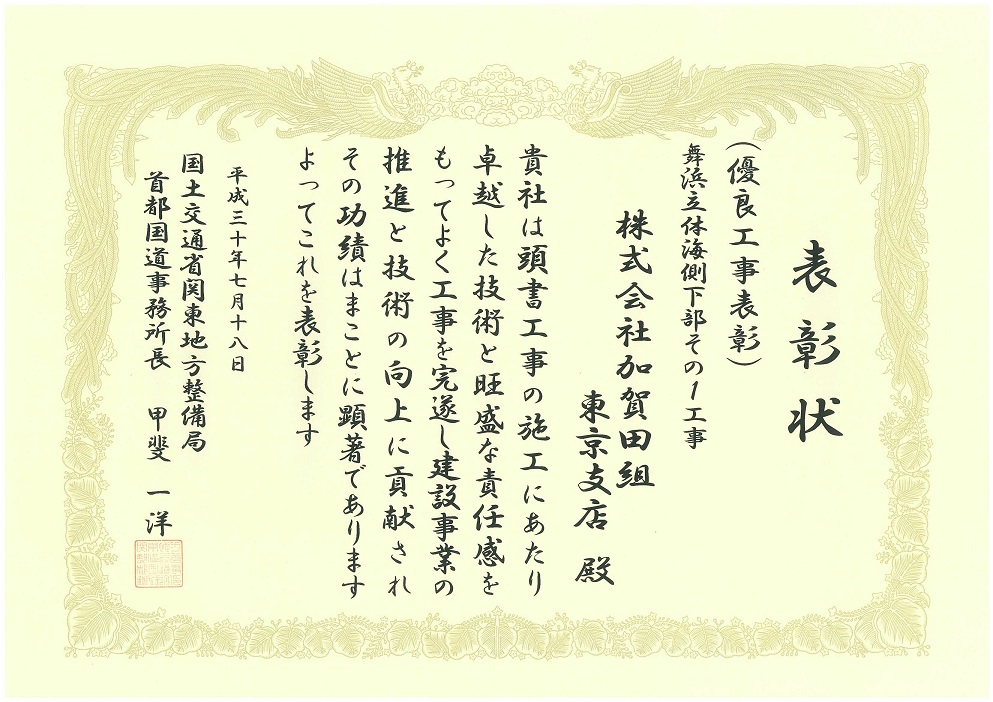 表彰状
(優良工事表彰)
舞浜立体海側下部その1工事
株式会社加賀田組
東京支店 殿
貴社は頭書工事の施工にあたり
卓越した技術と旺盛な責任感を
もってよく工事を完遂し建設事業の
推進と技術の向上に貢献され
その功績はまことに顕著であります
よってこれを表彰します
平成三十年七月十八日
国土交通省関東地方整備局
首都国道事務所長 甲斐 一洋